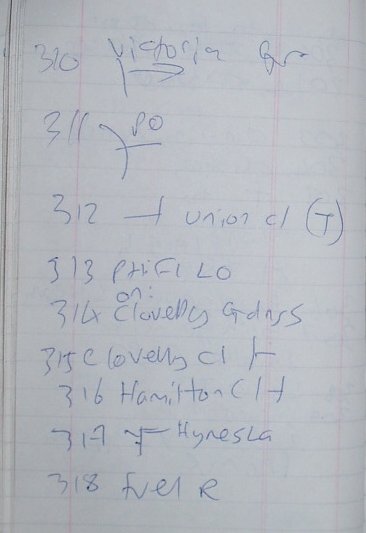 310 Victoria Gr
311 PO
312 Union cl (T)
313 PHiFi LO
on:
314 Clovelly Gdns
315 Clovelly Cl
316 Hamilton Cl
317 Hynesla
318 Fuel R